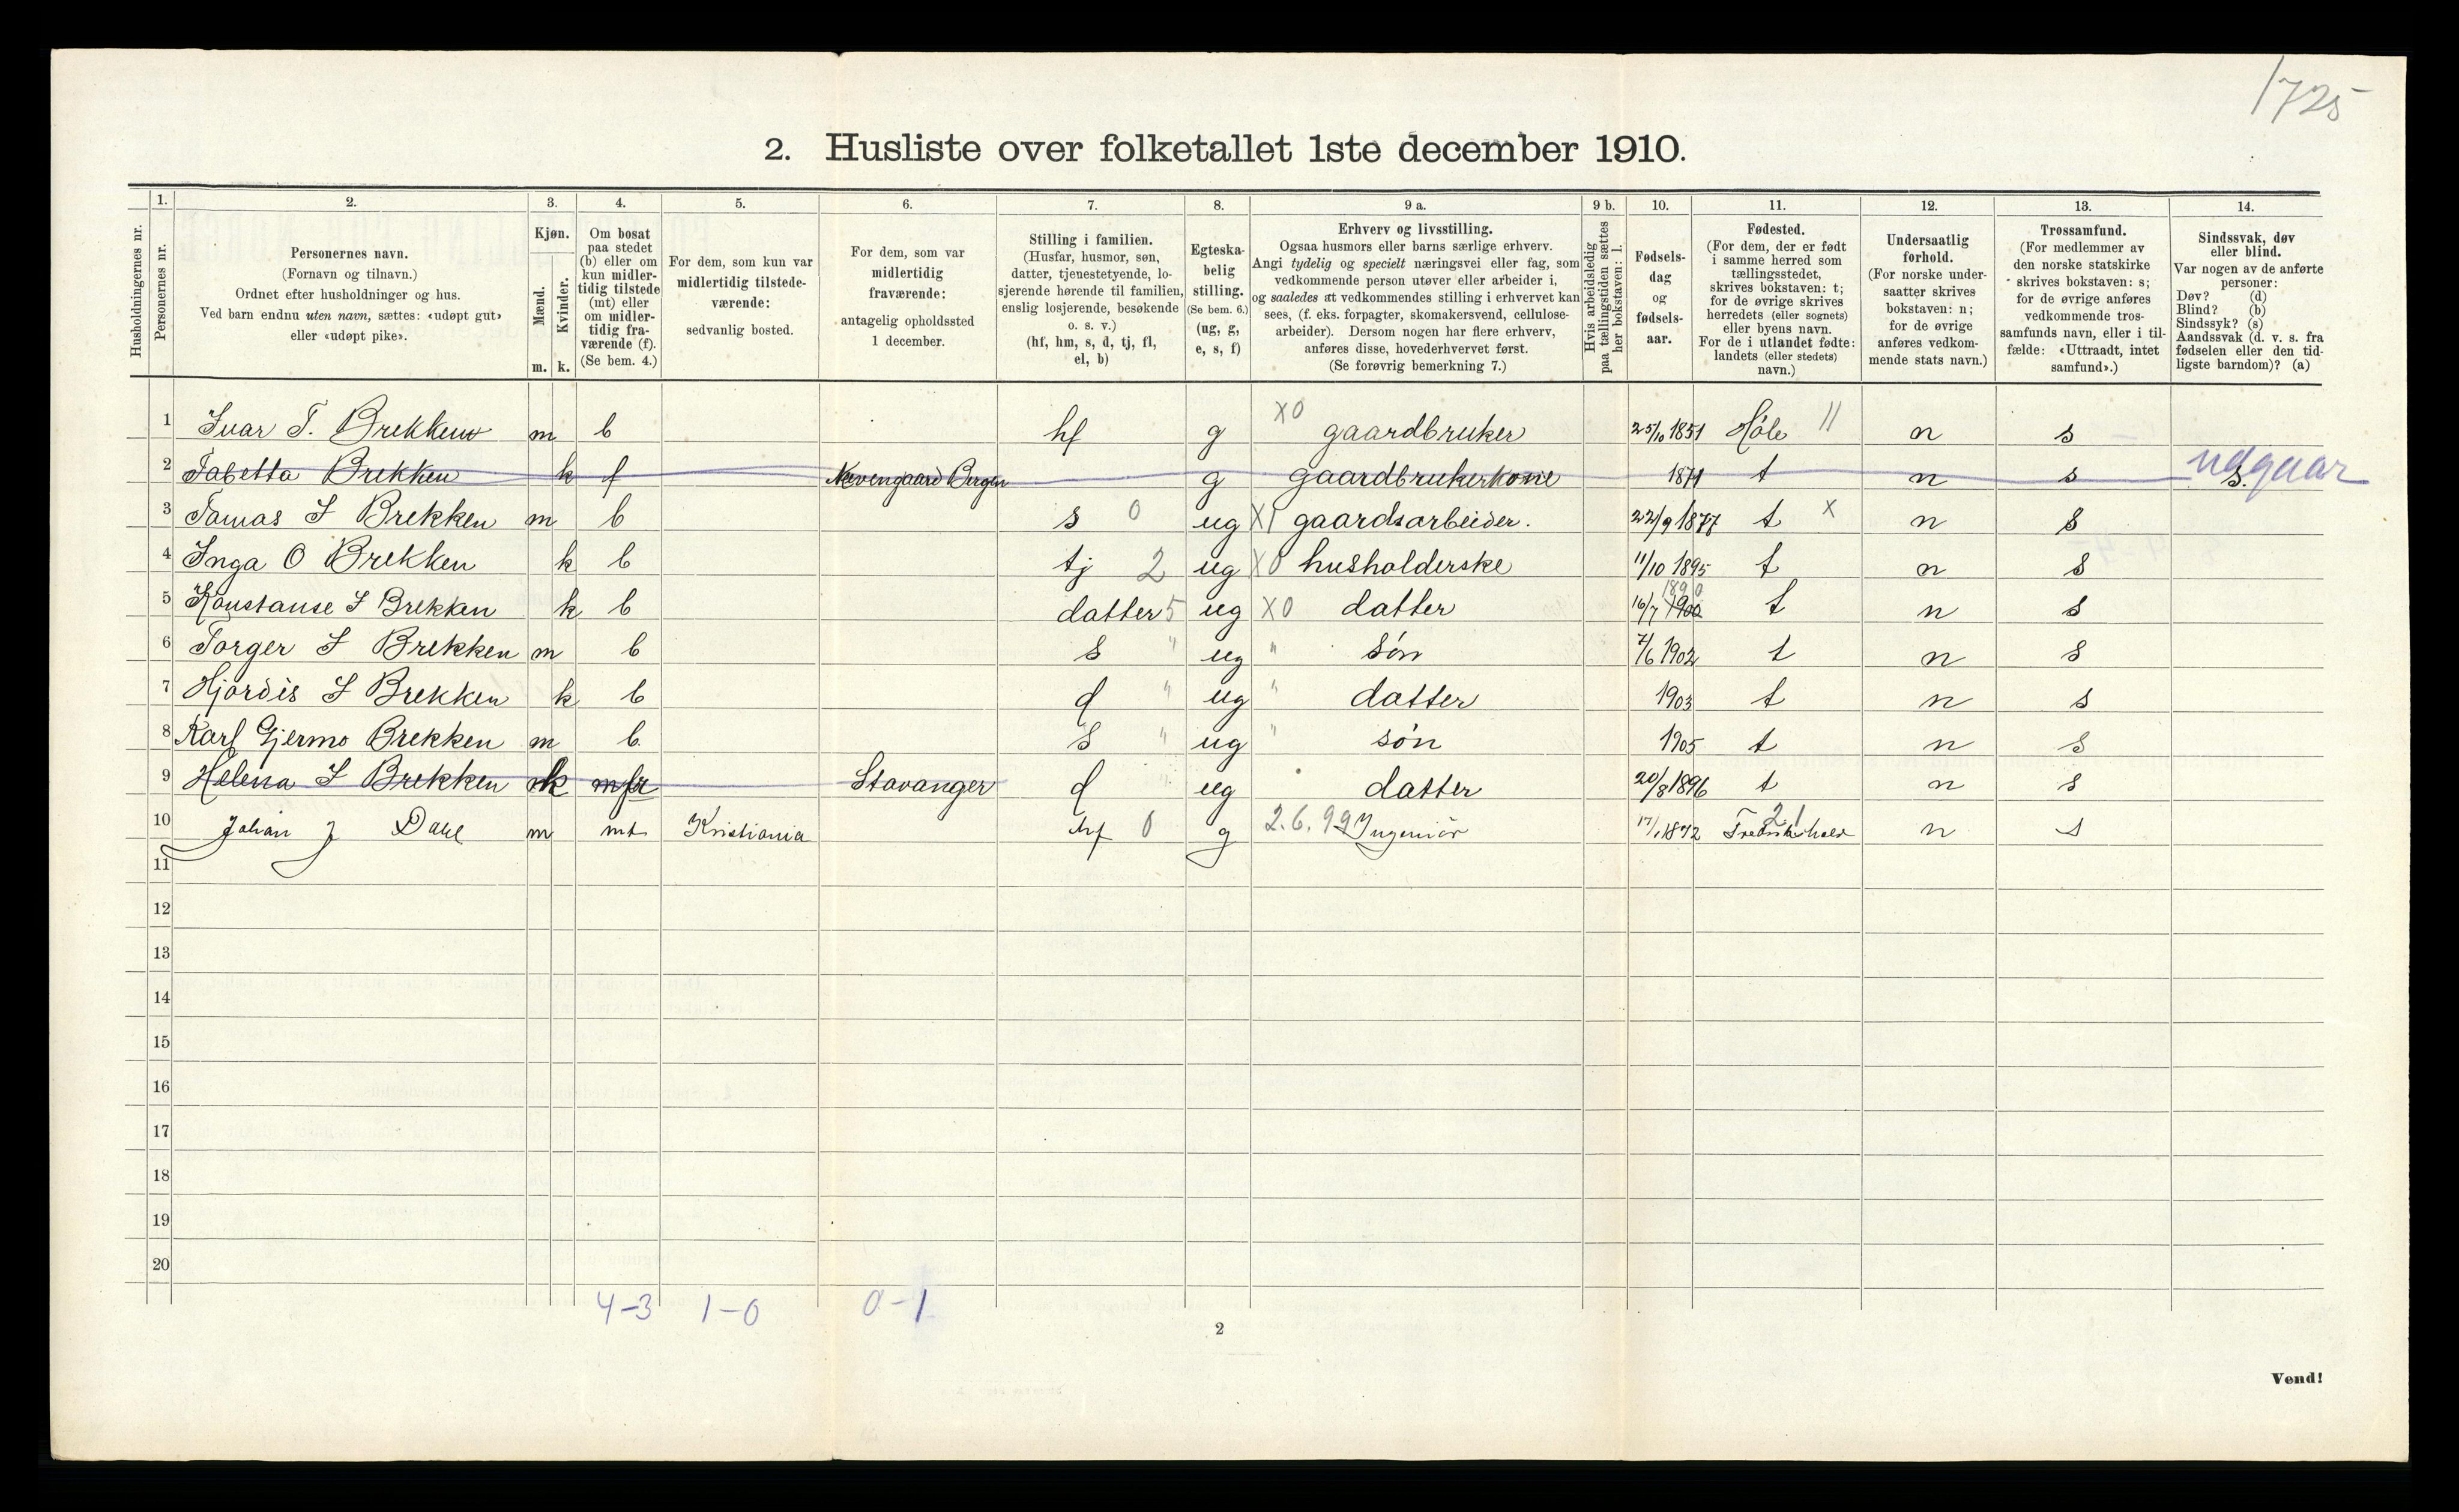 1725
2. Husliste over folketallet 1ste december 1910.
Husholdningernes nr.
1. Personernes nr.
2. Personernes navn.
(Fornavn og tilnavn.)
Ordnet efter husholdninger og hus.
Ved barn endnu uten navn, sættes: «udøpt gut»
eller «udøpt pike».
3. Kjøn.
Mænd. m.
Kvinder. k.
4. Om bosat
paa stedet
(b) eller om
kun midler-
tidig tilstede
(mt) eller
om midler-
tidig fra-
værende (f).
(Se bem. 4.)
5. For dem, som kun var
midlertidig tilstede-
værende:
sedvanlig bosted.
6. For dem, som var
midlertidig
fraværende:
antagelig opholdssted
1 december.
7. Stilling i familien.
(Husfar, husmor, søn,
datter, tjenestetyende, lo-
sjerende hørende til familien,
enslig losjerende, besøkende
o. s. v.)
(hf, hm, s, d, tj, fl,
el, b)
8. Egteska-
belig
stilling.
(Se bem. 6.)
(ug, g,
e, s, f)
9 a. Erhverv og livsstilling.
Ogsaa husmors eller barns særlige erhverv.
Angi tydelig og specielt næringsvei eller fag, som
vedkommende person utøver eller arbeider i,
og saaledes at vedkommendes stilling i erhvervet kan
sees, (f. eks. forpagter, skomakersvend, cellulose-
arbeider). Dersom nogen har flere erhverv,
anføres disse, hovederhvervet først.
(Se forøvrig bemerkning 7.)
9 b. Hvis arbeidsledig
paa tællingstiden sættes
her bokstaven: l.
10. Fødsels-
dag
og
fødsels-
aar.
11. Fødested.
(For dem, der er født
i samme herred som
tællingsstedet,
skrives bokstaven: t;
for de øvrige skrives
herredets (eller sognets)
eller byens navn.
For de i utlandet fødte:
landets (eller stedets)
navn.)
12. Undersaatlig
forhold.
(For norske under-
saatter skrives
bokstaven: n;
for de øvrige
anføres vedkom-
mende stats navn.)
13. Trossamfund.
(For medlemmer av
den norske statskirke
skrives bokstaven: s;
for de øvrige anføres
vedkommende tros-
samfunds navn, eller i til-
fælde: «Uttraadt, intet
samfund».)
14. Sindssvak, døv
eller blind.
Var nogen av de anførte
personer:
Døv? (d)
Blind? (b)
Sindssyk? (s)
Aandssvak (d. v. s. fra
fødselen eller den tid-
ligste barndom)? (a)
1 Ivar T. Brekken m b hf g X0 gaardbruker 25/10 1851 Høle 11 n s
2 Tabetta Brekken k f Nevengaard Bergen g gaardbrukerkone 1871 t n s s. udgaar
3 Tomas I Brekken m b s 0 ug X1 gaardsarbeider. 22/9 1877 t x n s
4 Inga O Brekken k b tj 2 ug X0 husholderske 11/10 1895 t n s
5 Konstanse I Brekken k b datter 5 ug X0 datter 16/7 1900 1890 t n s
6 Torger I Brekken m b s " ug " søn 7/6 1902 t n s
7 Hjordis I Brekken k b d " ug " datter 1903 t n s
8 Karl Gjermo Brekken m b. s " ug " søn 1905 t n s
9 Helena I Brekken k mfr Stavanger d " ug datter 20/8 1896 t n s
10 Johan J Dahl m mt Kristiania hf 0 g 2.6.99 Ingeniör 17/1 1872 Fredrikshald 21 n s
11
12
13
14
15
16
17
18
19
20
4-3 1-0 0-1
2
Vend!